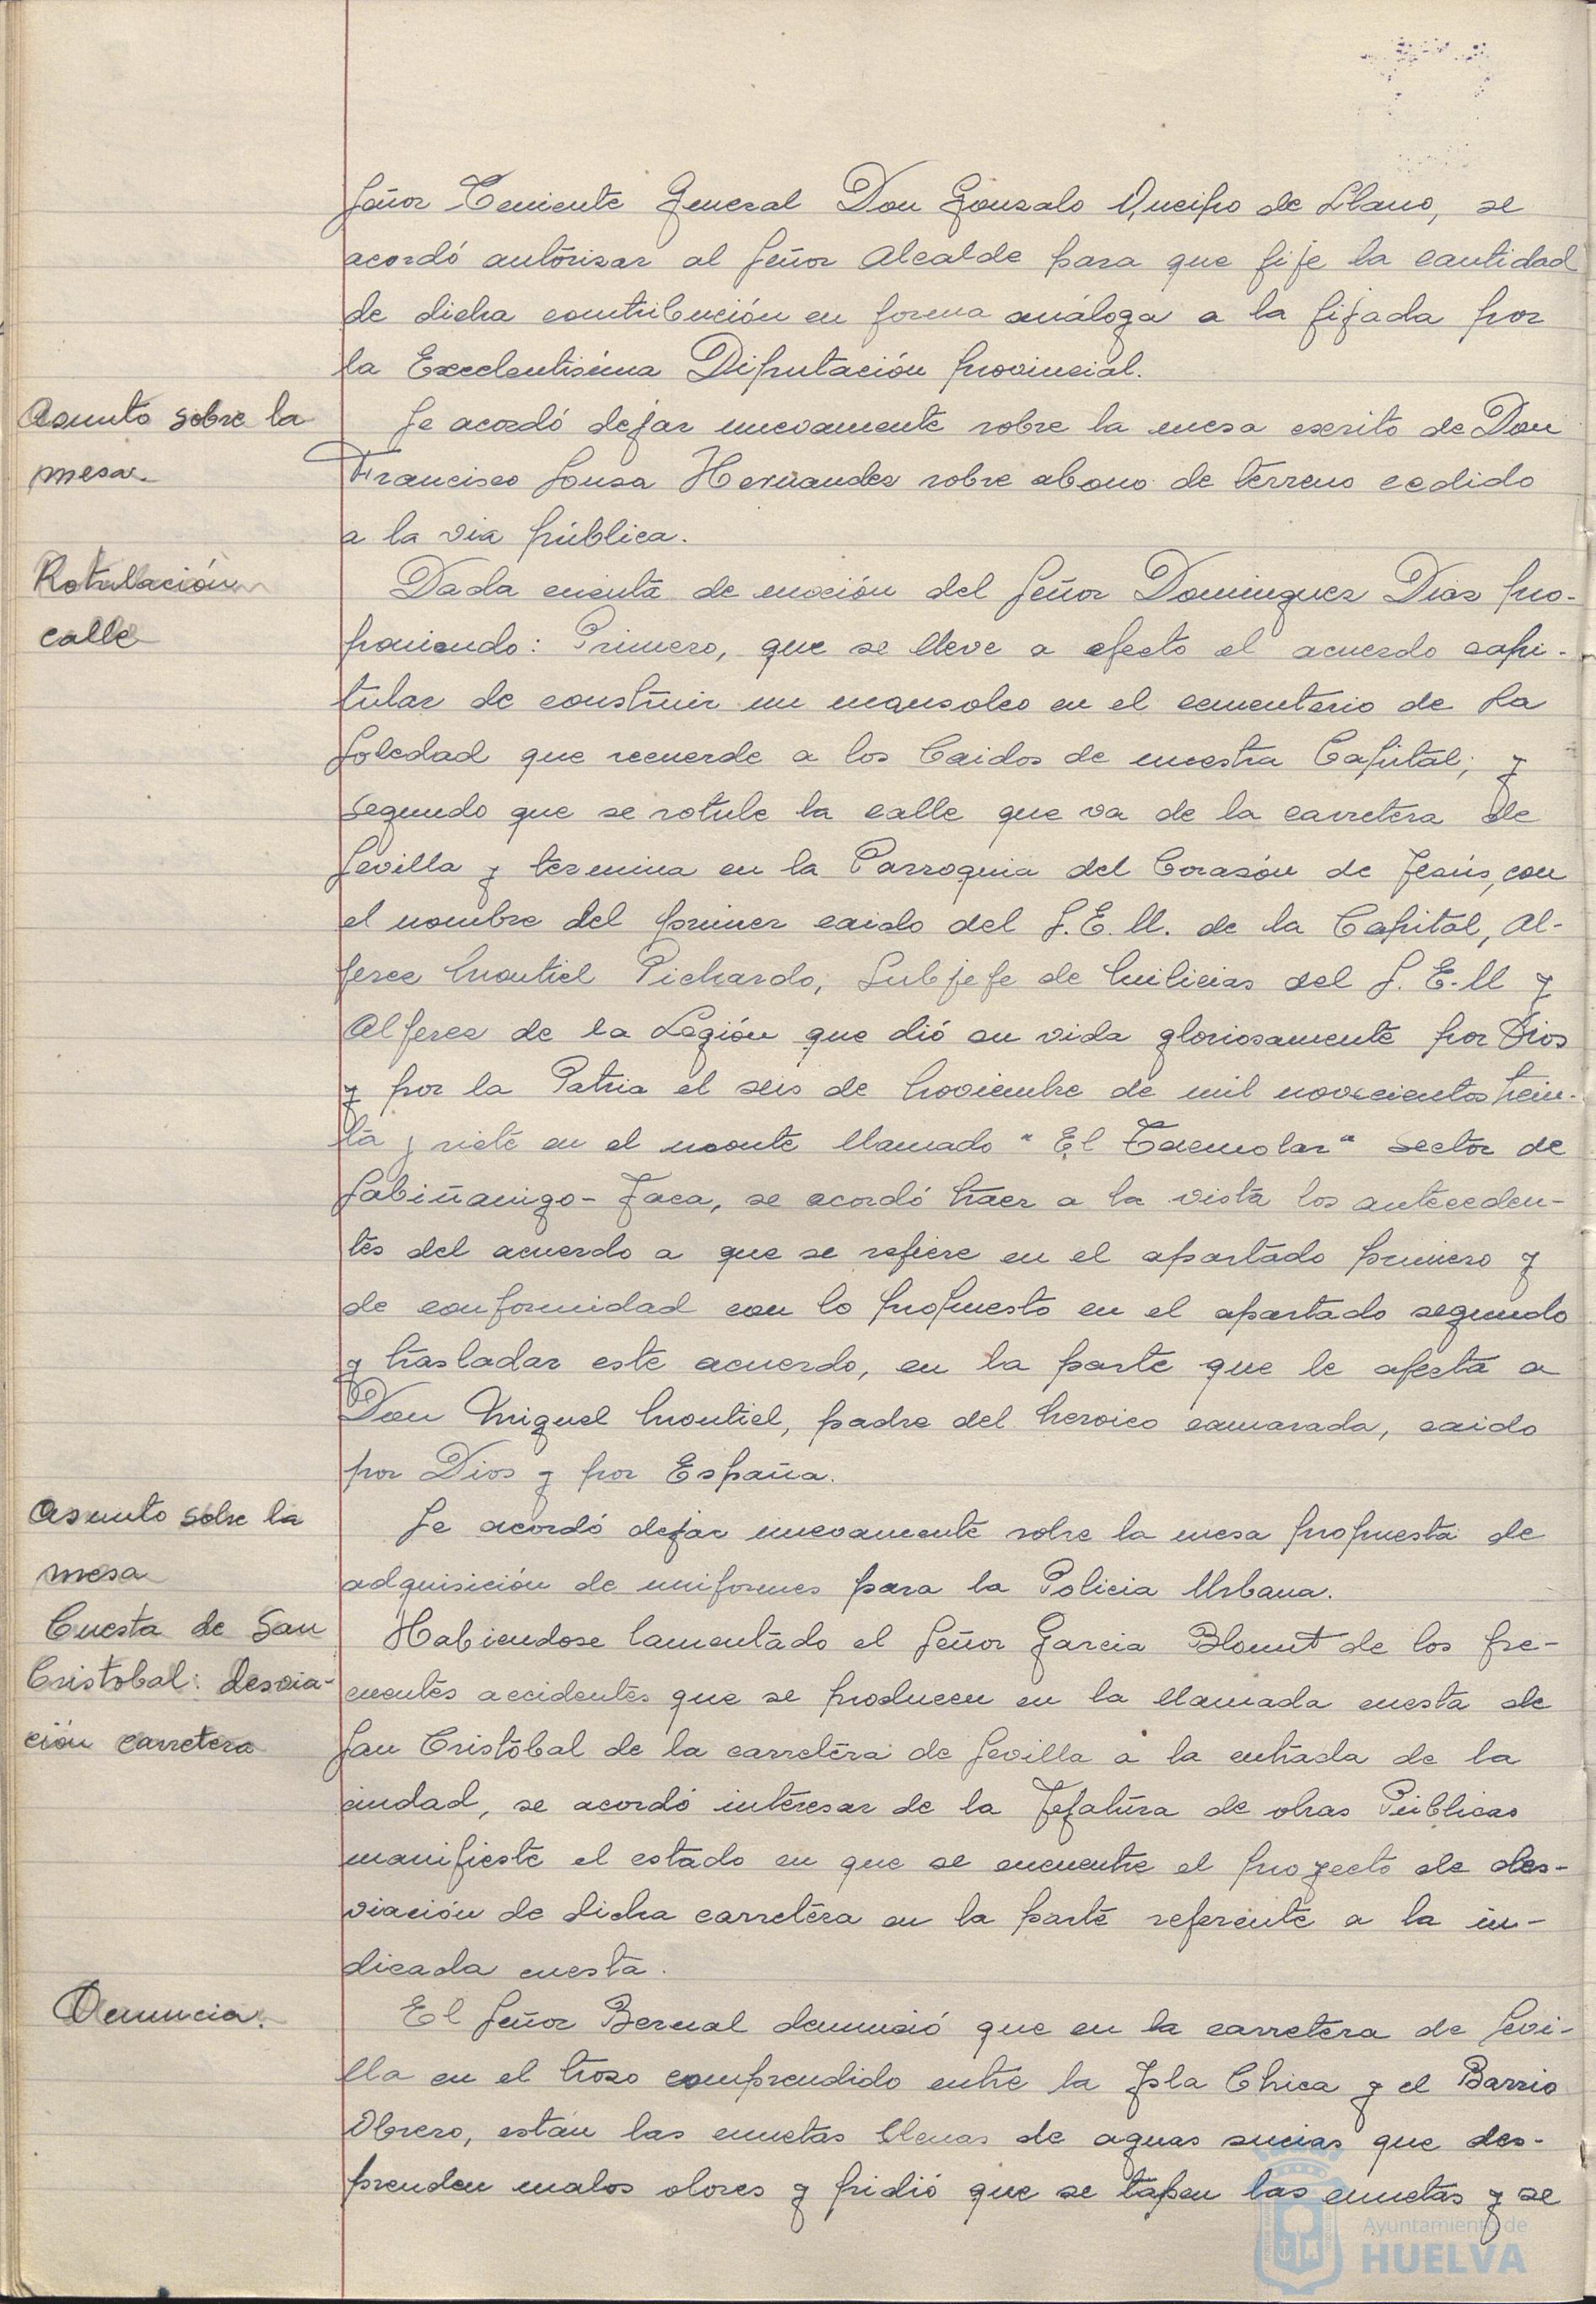 Señor Teniente General Don Gonzalo Queipo de Llano, se
acordó autorizar al Señor Alcalde para que fije la cantidad
de dicha contribución en forma análoga a la fijada por
la Excelentisima Diputación provincial.
Asunto sobre la
mesa.
Se acordó dejar nuevamente sobre la mesa escrito de Don
Francisco Sousa Hernandez sobre abono de terreno cedido
a la via pública.
Rotulación
calle
Dada cuenta de moción del Señor Dominguez Diaz pro-
poniendo: Primero, que se lleve a efecto el acuerdo capi-
tular de construir un mausoleo en el cementerio de La
Soledad que recuerde a los Caidos de nuestra Capital; y
segundo que se rotule la calle que va de la carretera de
Sevilla y termina en la Parroquia del Corazón de Jesús, con
el nombre del primer caido del S.E.U. de la Capital, Al-
ferez Montiel Pichardo, Subjefe de Milicias del S.E.U y
Alferez de la Legión que dió su vida gloriosamente por Dios
y por la Patria el seis de Noviembre de mil novecientos trein-
ta y siete en el monte llamado "El" sector de
Sabiñanigo-Jaca, se acordó traer a la vista los anteceden-
tes del acuerdo a que se refiere en el apartado primero y
de conformidad con lo propuesto en el apartado segundo
y trasladar este acuerdo, en la parte que le afecta a
Don Miguel Montiel, padre del heroico camarada, caido
por Dios y por España.
Asunto sobre la
mesa
Se acordó dejar nuevamente sobre la mesa propuesta de
adquisición de uniformes para la Policia Urbana.
Cuesta de San
Cristobal: desvia-
ción carretera
Habiendose lamentado el Señor Garcia Blount de los fre-
cuentes accidentes que se producen en la llamada cuesta de
San Cristóbal de la carretera de Sevilla a la entrada de la
ciudad, se acordó interesar de la Jefatura de obras Públicas
manifieste el estado en que se encuentre el proyecto de des-
viación de dicha carretera en la parte referente a la in-
dicada cuesta.
Denuncia.
El Señor Bernal denunció que en la carretera de Sevi-
lla en el trozo comprendido entre la Isla Chica y el Barrio
Obrero, están las cunetas llenas de aguas sucias que des-
prenden malos olores y pidió que se tapen las cunetas y se
Ayuntamiento de
HUELVA